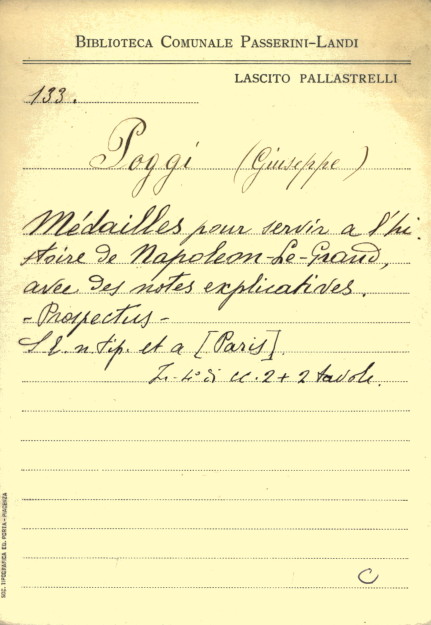 BIBLIOTECA COMUNALE PASSERINI-LANDI
LASCITO PALLASTRELLI
133.
Poggi (Giuseppe)
Médailles pour servir a l'hi-
stoire de Napoleon-Le-Grand,
avec des notes explicatives.
-Prospectus-
S. l. n. tip. et a [Paris].
In-4° di cc. 2 + 2 tavole.
C
SOC. TIPOGRAFICA ED. PORTA-PIACENZA